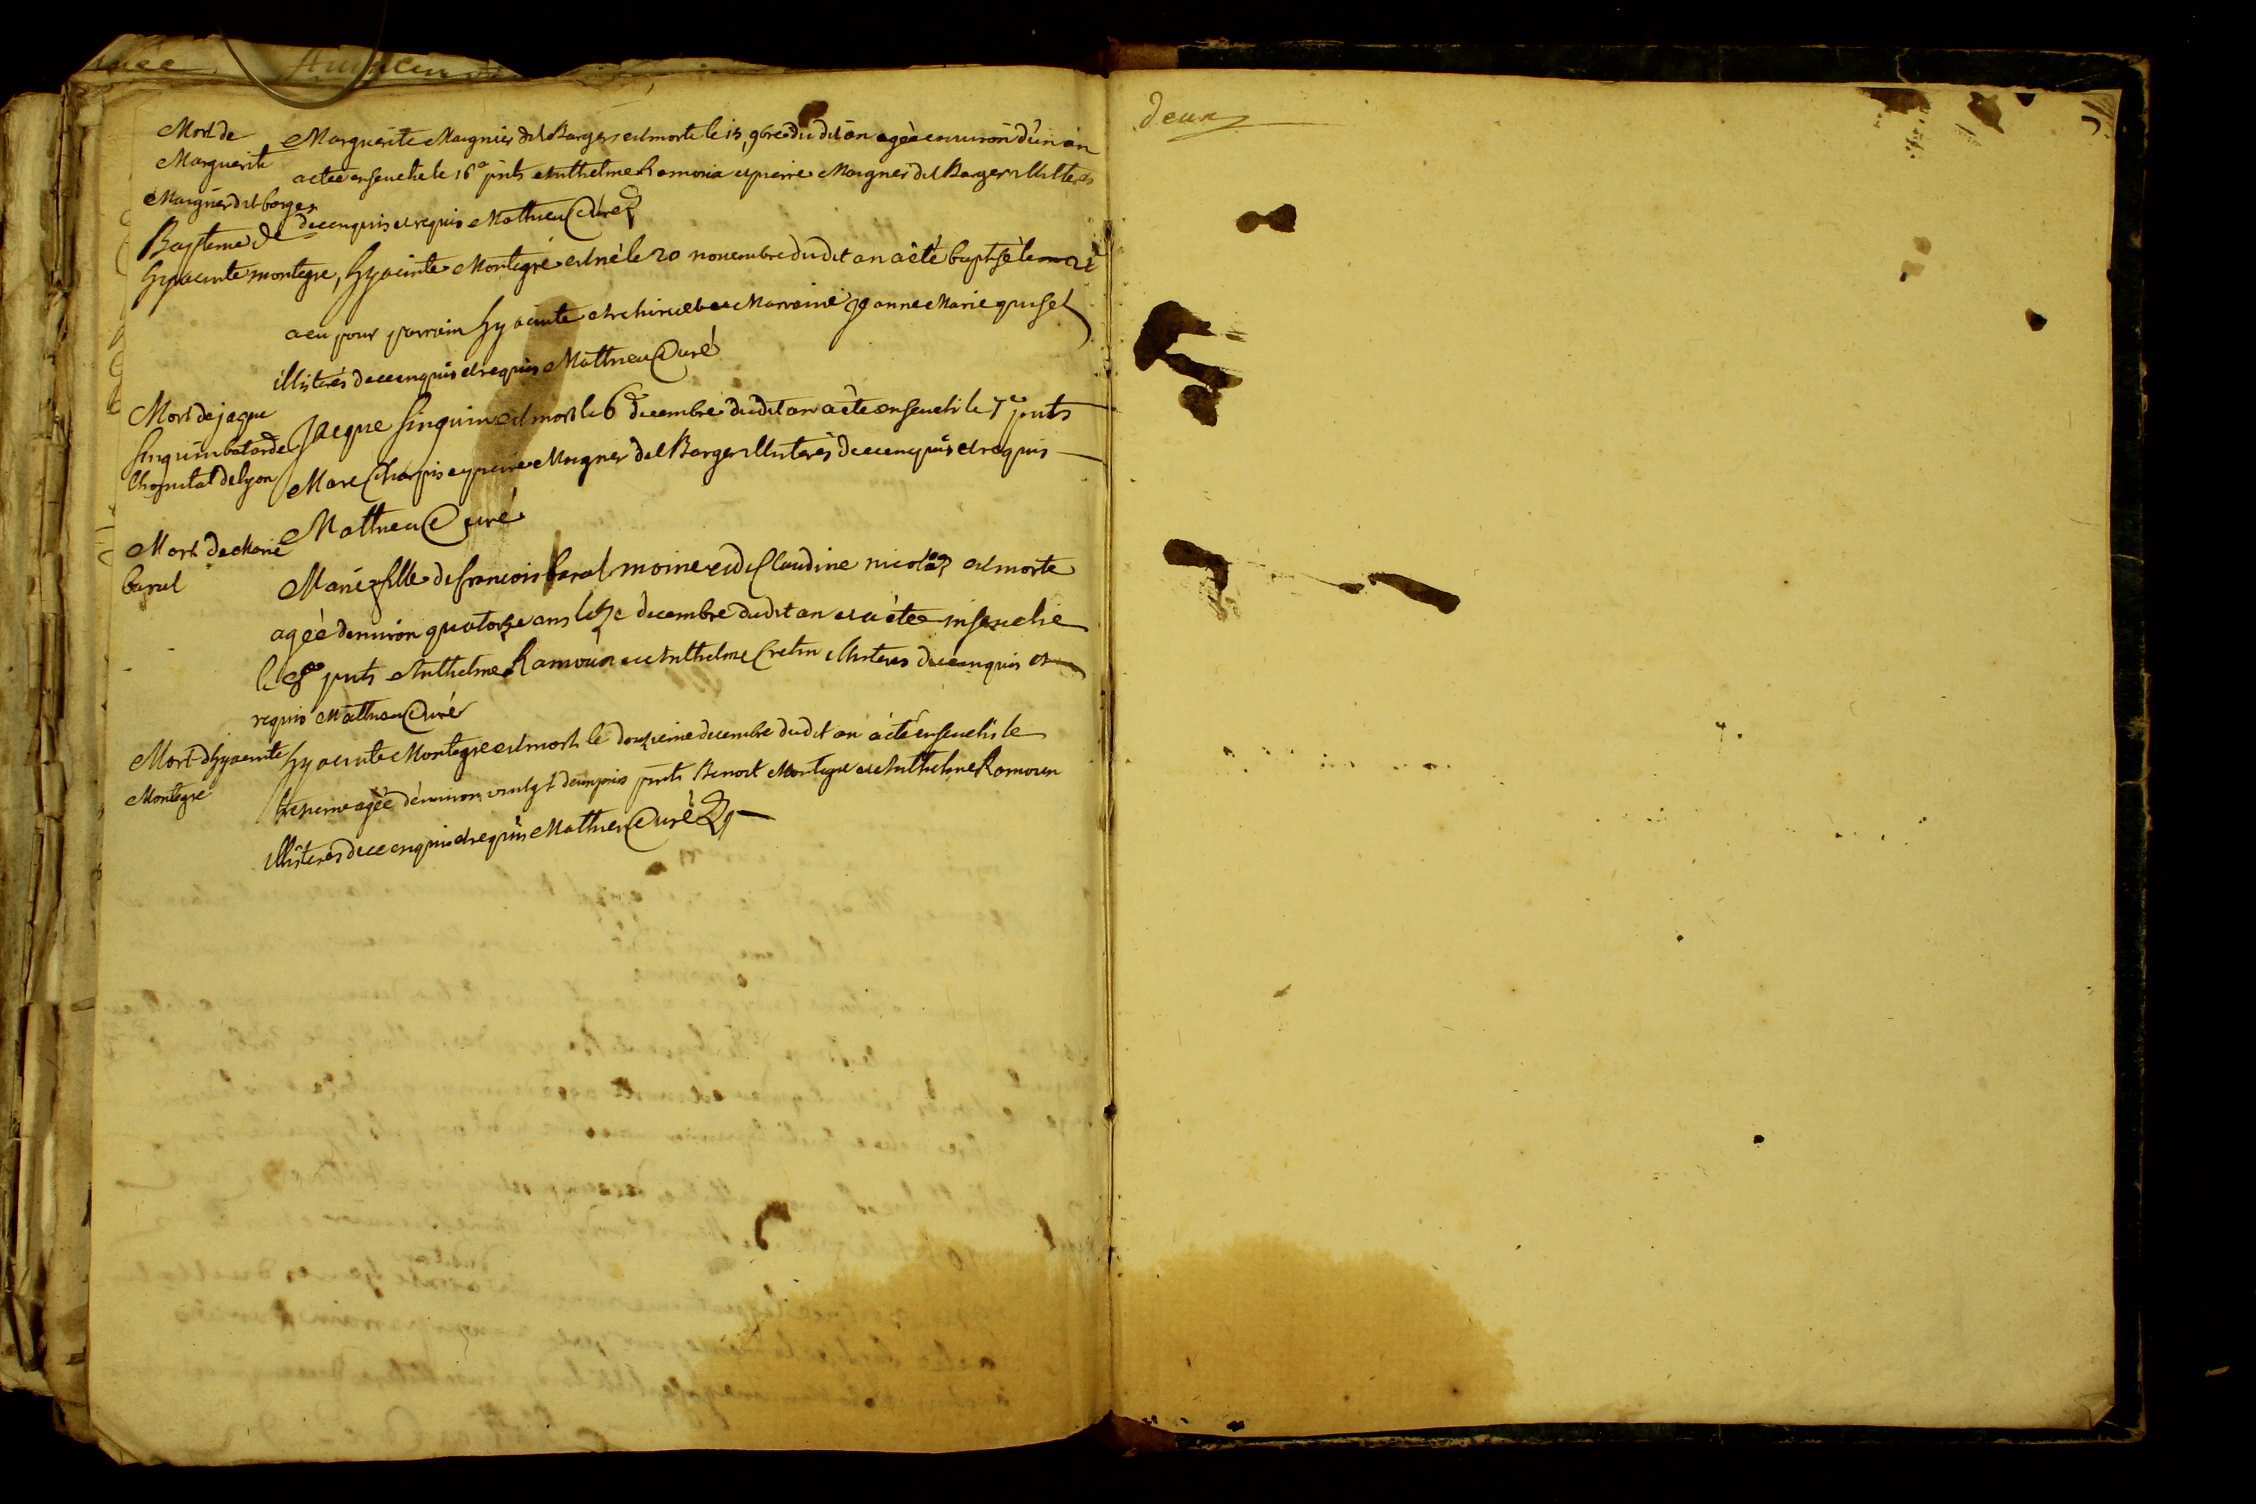 Mort de
Marguerite
Maignier dit barger
Marguerite Maignier dit Barger est morte le 15, 9bre du dit an agée environ d'un an
a eté ensevelie le 16e pnts Anthelme Ramoux et pierre Maignier dit Barger illiteres
de ce enquis et requis Mathieu Curé
Bapteme de
hyacinte montegre,
hyacinte Montegre est né le 20 novembre du dit an a été baptisé le 21e
a eu pour parrain hyacinte et a eu Marraine Jeanne Marie quiset
illiterés de ce enquis et requis Mathieu Curé
Mort de jaque
sinquin batard de
lhopital de lyon
Jacque sinquin est mort le 6 decembre du dit an a ete enseveli le 7e pnts
Marc Charpis et pierre Maigner dit Barger illiterés de ce enquis et requis
Mathieu Curé
Mort de Marie
baral
Marie fille de francois baral moine et de Claudine nicolas est morte
agée denviron quatorze ans le 7e decembre du dit an et a étee ensevelie
le 8e pnts Anthelme Ramoux et Anthelme Cretin illiteres de ce enquis et
requis Mathieu Curé
Mort dhyacinte
Montegre
hyacinte Montegre est mort le douzieme decembre du dit an a été ensevelis le
treizieme agée d'environ vingt deux jours pnts Benoit Montegre et Anthelme Ramoux
illiterés de ce enquis et requis Mathieu Curé
deux